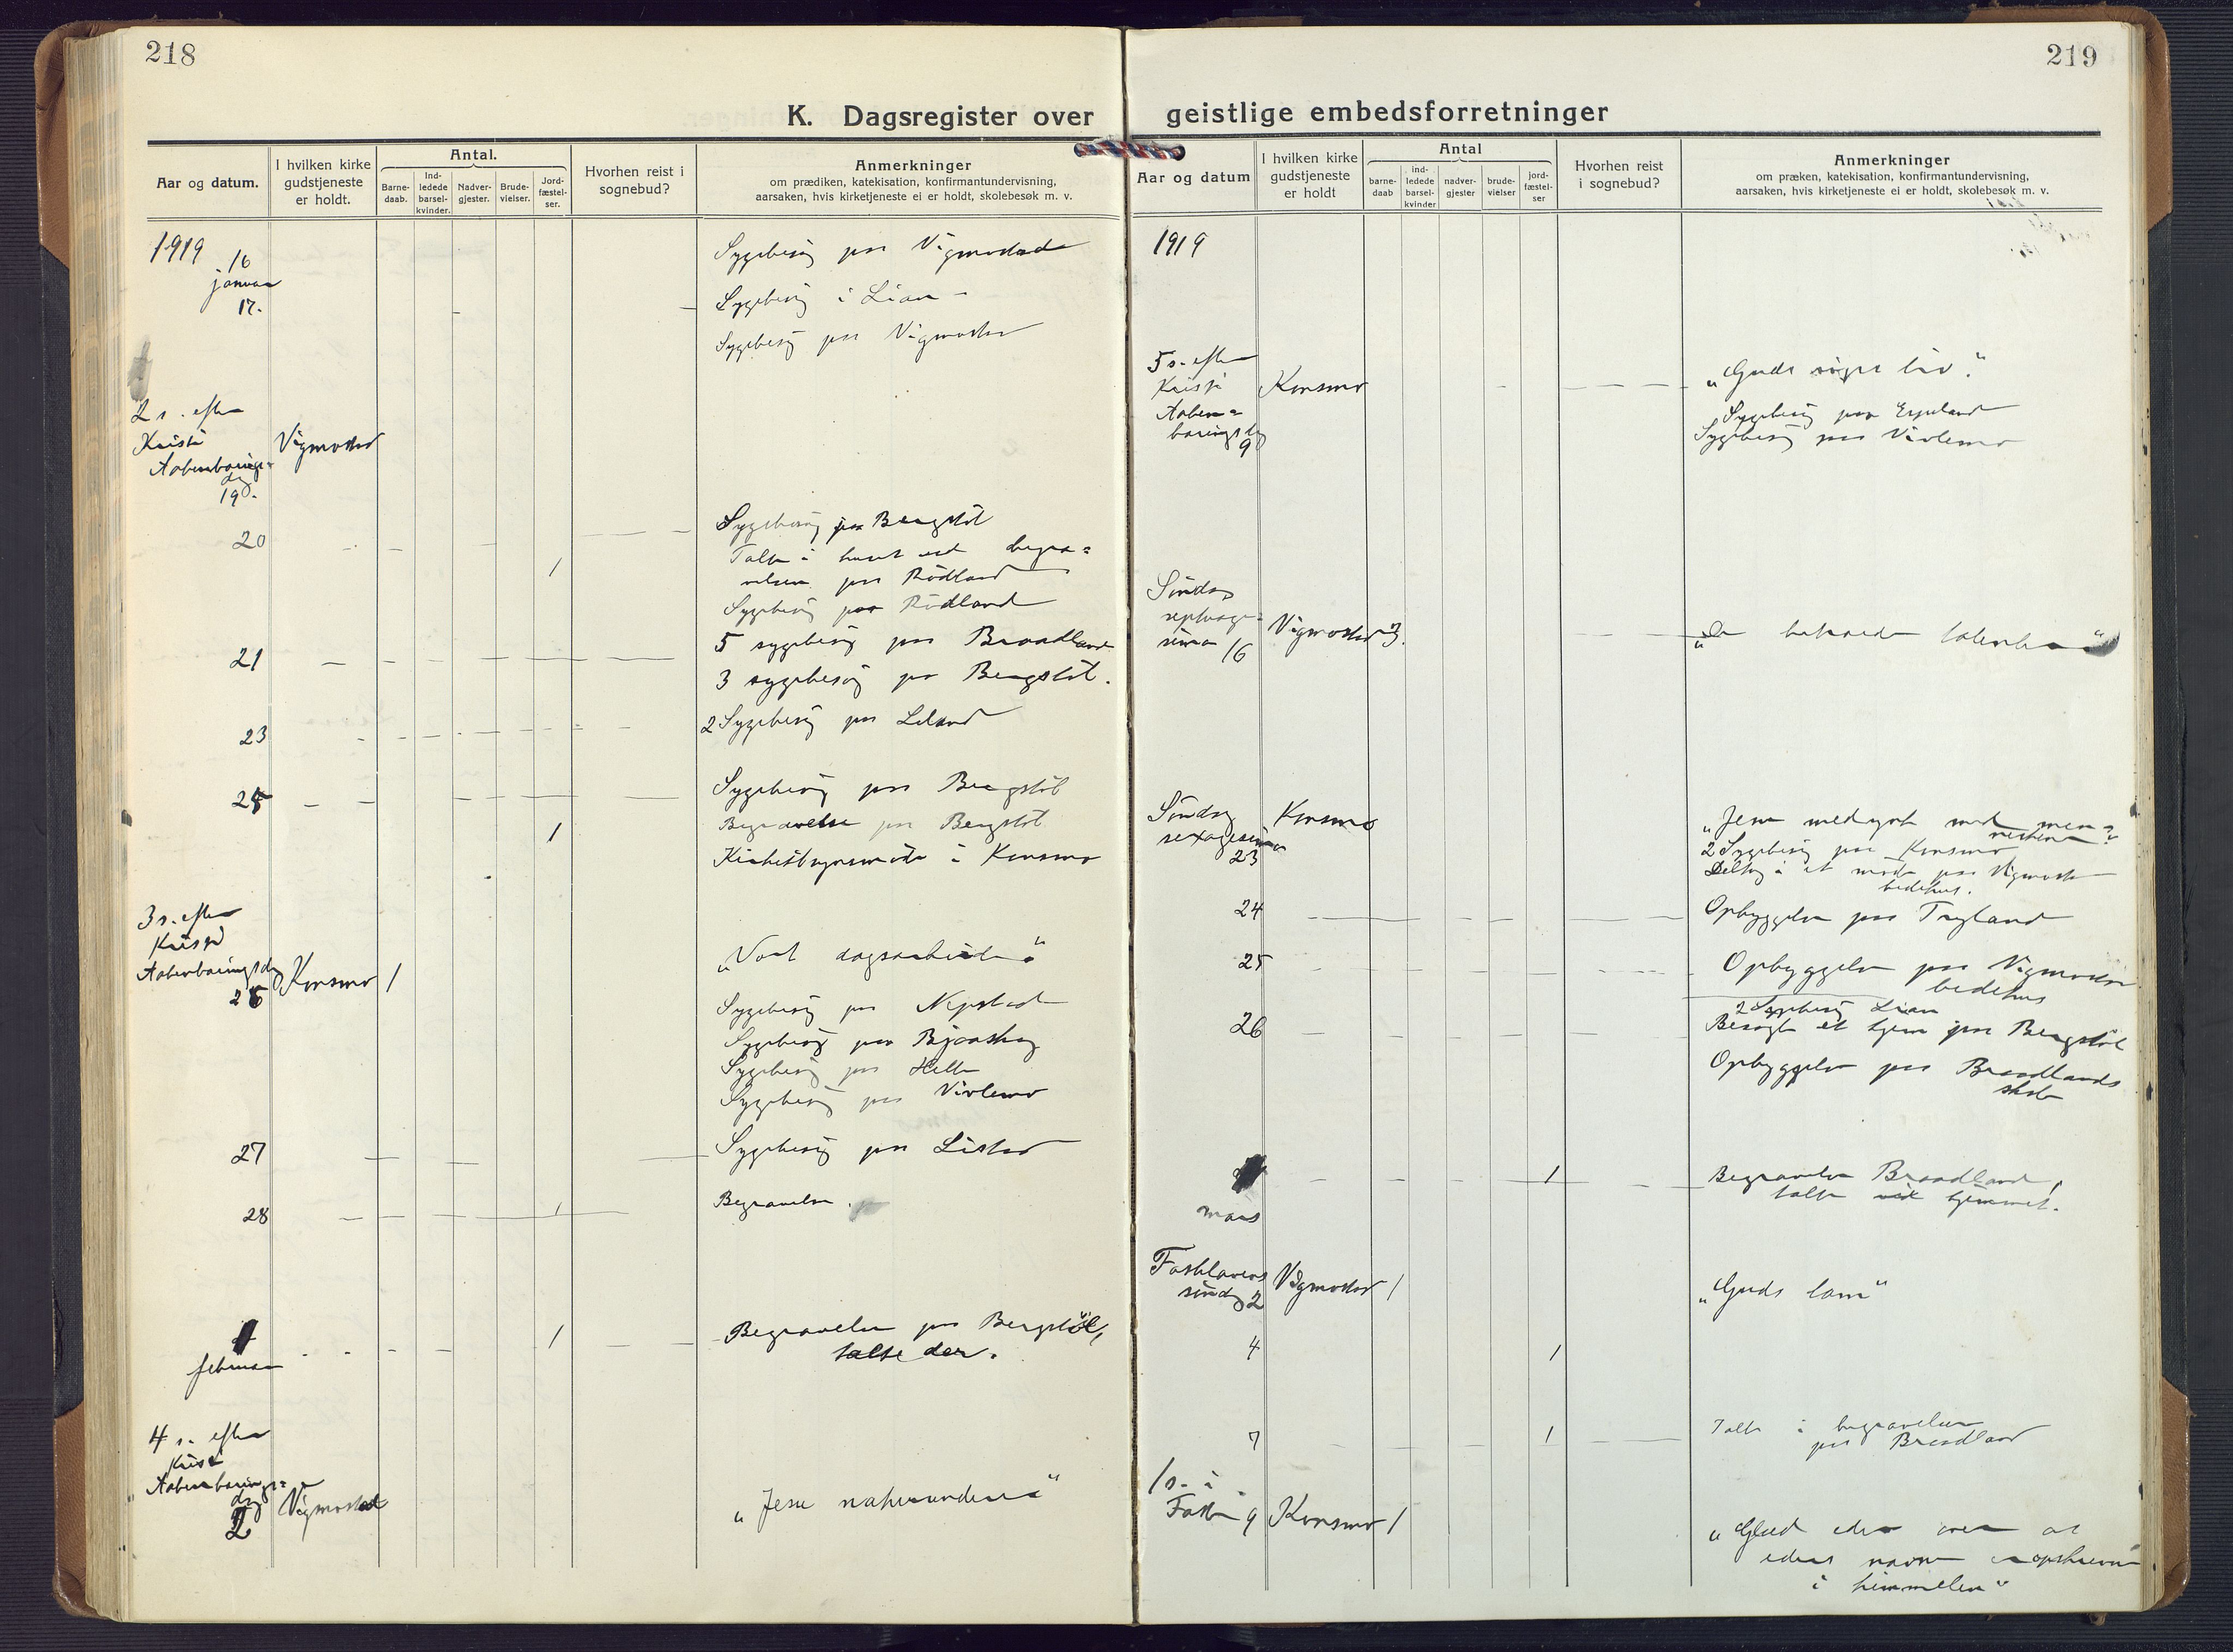 218
K. Dagsregister over
Aar og datum.
I hvilken kirke
gudstjeneste
er holdt.
Antal.
Barne-
daab.
Ind-
ledede
barsel-
kvinder.
Nadver-
gjester.
Brude-
vielser.
Jord-
fæstel-
ser.
Hvorhen reist i
sognebud?
Anmerkninger
om prædiken, katekisation, konfirmantundervisning,
aarsaken, hvis kirketjeneste ei er holdt, skolebesøk m. v.
1919
16
januar
Sygebesøg paa Vigmostad
17.
Sygebesøg i Lian
Sygebesøg paa Vigmostad
2 s. efter
Kristi
Aabenbarings-
dag
19.
Vigmostad
20
Sygebesøg paa Bergstöl
1
Talte i huset ved begra=
velsen paa Rödland
Sygebesøg paa Rödland
21
5 sygebesøg paa Braadland
3 sygebesøg paa Bergstöl.
23
2 Sygebesøg paa Leland
25
Sygebesøg paa Bergstöl
1
Begravelse paa Bergstöl
Kirketilsynsmöte i Konsmo
3 s. efter
Kristi
Aabenbaringsdag
26
Konsmo
1
„Vort dagsarbeide“
Sygebesøg paa Nepstad
Sygebesøg paa Bjaaskog
Sygebesøg paa Helle
Sygebesøg paa Vivlemo
27
Sygebesøg paa Listad
28
1
Begravelse.
1
februar
1
Begravelse paa Bergstöl,
talte der.
4 s. efter
Kristi
Aabenbarings=
dag
2
Vigmostad
„Jesu naturundere“
219
geistlige embedsforretninger
Aar og datum
I hvilken kirke
gudstjeneste
er holdt
Antal
barne-
daab
ind-
ledede
barsel-
kvinder
nadver-
gjester
brude-
vielser
jord-
fæstel-
ser
Hvorhen reist
i sognebud?
Anmerkninger
om præken, katekisation, konfirmantundervisning,
aarsaken, hvis kirketjeneste ei er holdt, skolebesøk m. v.
1919
5 s. efter
Kristi
Aaben=
baringsdag
9
Konsmo
„Guds riges liv“
Sygebesøg paa
Sygebesøg paa Vivlemo
Söndag
septuage=
sima 16
Vigmostad
3.
„De betroede talenter“
Söndag
sexagesima
23
Konsmo
„Jesu medynk med men=
neskene“
2 Sygebesøg paa Konsmo
Deltog i et möte paa Vigmostad
bedehus.
24
Opbyggelse paa Trygland
25
Opbyggelse paa Vigmostad
bedehus
26
2 Sygebesøg Lian
Besøgte et hjem paa Bergstöl
Opbyggelse paa Braadlands
skole
mars
1
Begravelse Braadland,
talte ved hjemmet.
Fastelavens
söndag 2
Vigmostad
1
„Guds lam“
4
1
7
1
Talte i begravelsen
paa Braadland
1 s. i
Faste 9
Konsmo
1
„Glæd eder over at
eders navne er opskrevne
i himmelen“